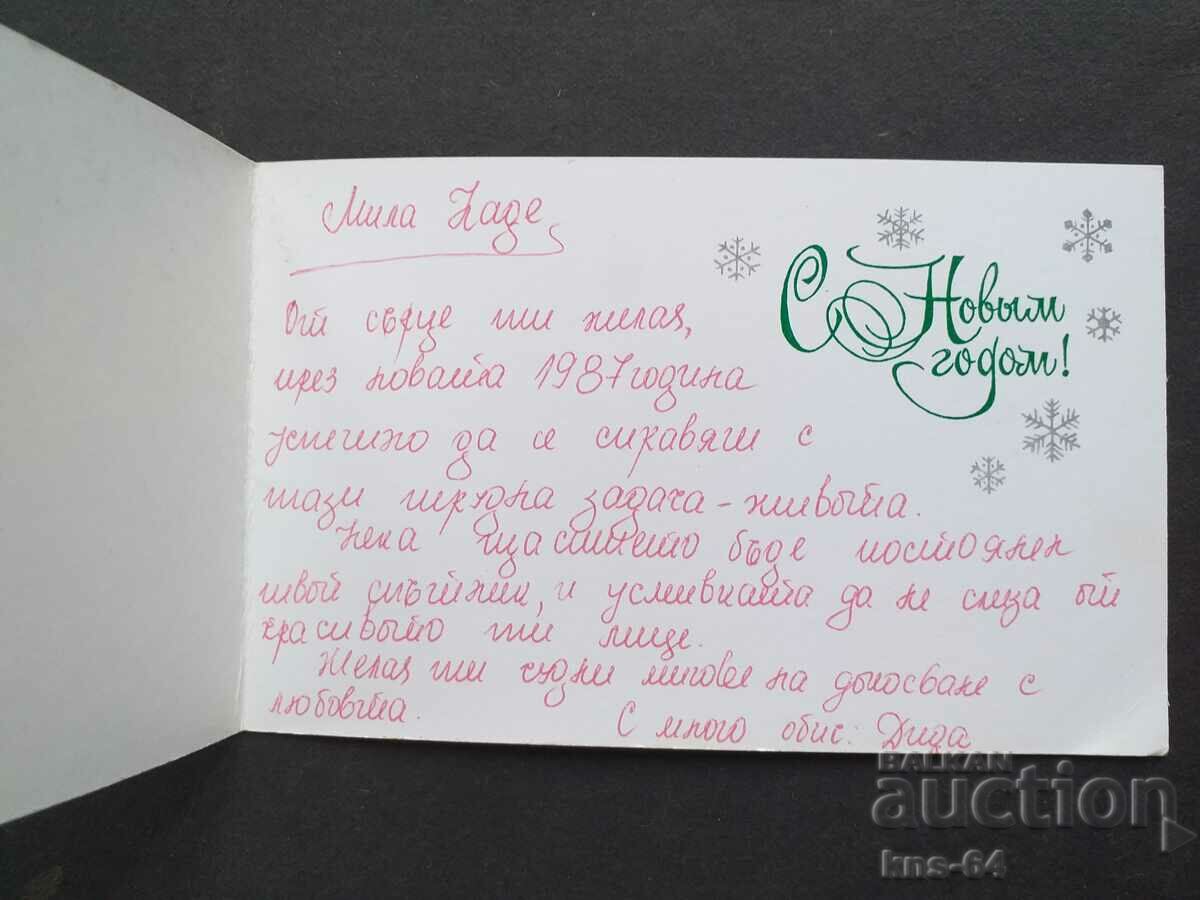 Мила Наде,
С Новым
годом!
От сърце ти желая,
през новата 1987 година
успешно да се справяш с
тази трудна задача - живота.
Нека щастието бъде постоянен
твой спътник, и усмивката да не слиза от
красивото ти лице.
Желая ти чудни мигове на докосване с
любовта.
С много обич: Дида
BALKAN
auction
kns-64